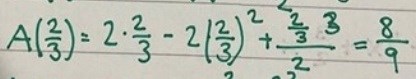 A(2/3) = 2·2/3 − 2(2/3)² + (2/3)³/2 = 8/9